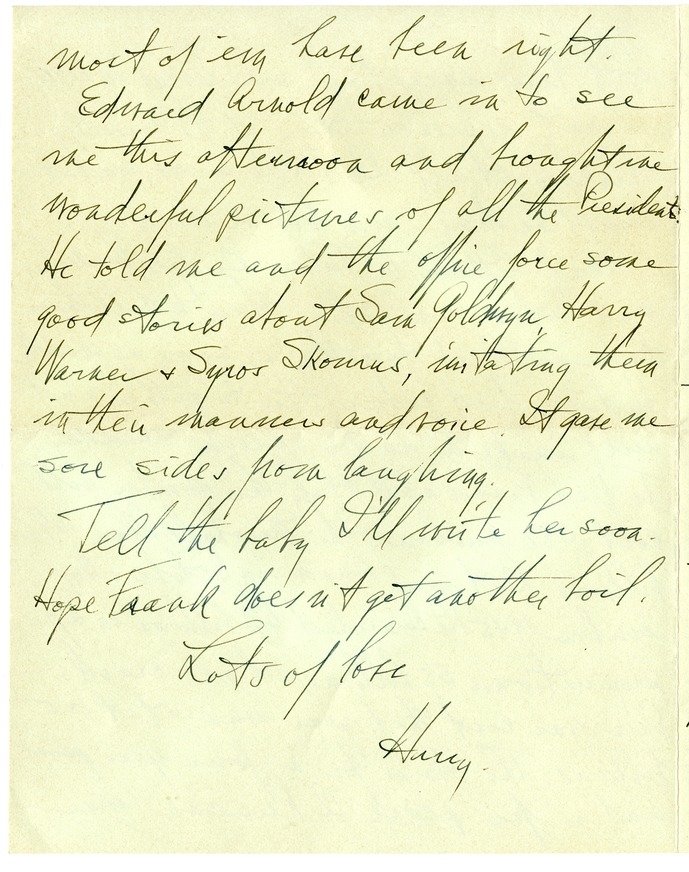 most of 'em have been right.
Edward Arnold came in to see
me this afternoon and brought me
wonderful pictures of all the Presidents.
He told me and the office force some
good stories about Sam Goldwyn, Harry
Warner + Syros Skouras, imitating them
in their manners and voice. It gave me
sore sides from laughing.
Tell the baby I'll write her soon.
Hope Frank doesn't get another boil.
Lots of love
Harry.